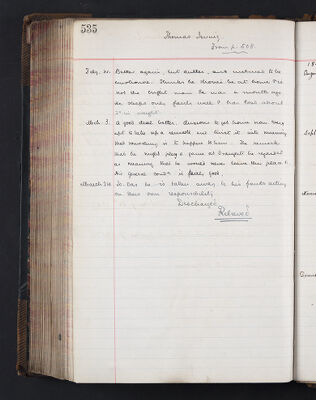 535
Thomas
From p. 508
Feby. 21. Better again, but duller, and inclined to be
emotional. Thinks he should be at home & is
not the bright man he was a month ago.
He sleeps only fairly well & has lost about
in weight.
Mch. 3. A good deal better. Anxious to get home now. Very
apt to take up a remark and twist it into meaning
that something is to happen to him. The remark
that he might play a game at draughts he regarded
as meaning that he would never leave this place.
His general condn is fairly good.
March To-day he is taken away by his family acting
on their own responsibility.
Discharged
Relieved